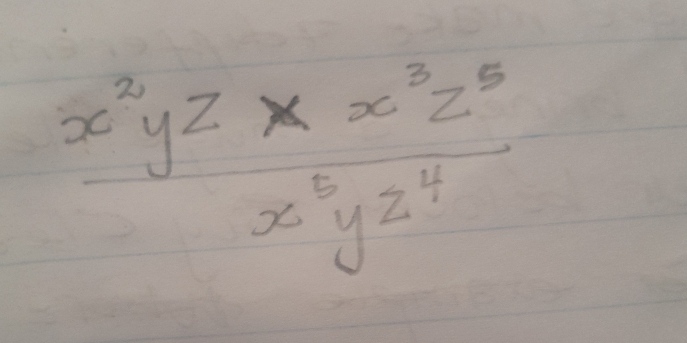 x²yz × x³z⁵
x⁵yz⁴